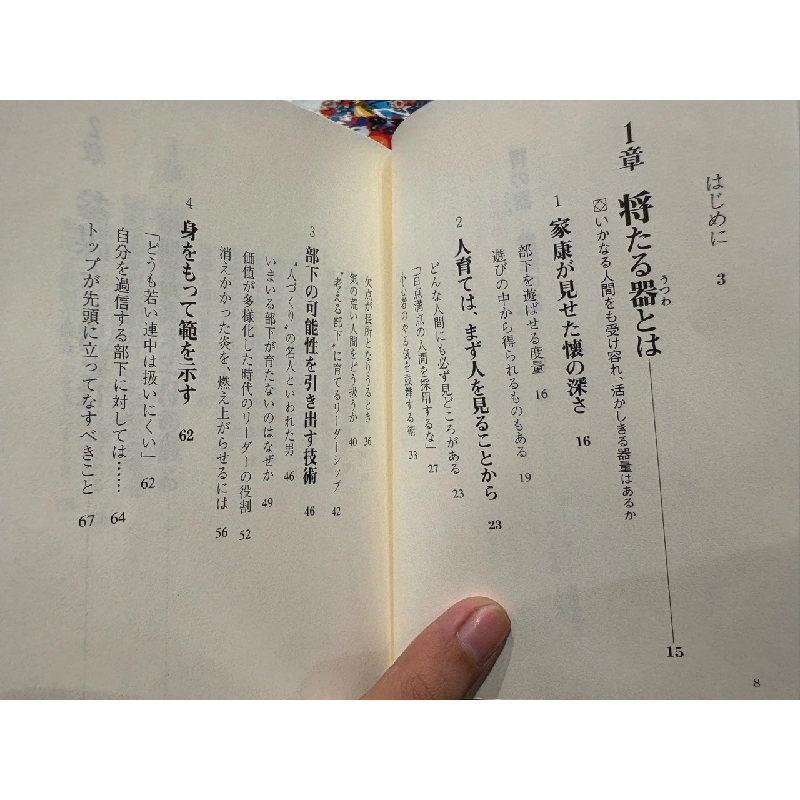 はじめに 3
1章 将たる器とは 15
うつわ
いかなる人間をも受け容れ、活かしきる器量はあるか
1 家康が見せた懐の深さ 16
部下を遊ばせる度量 16
遊びの中から得られるものもある 19
2 人育ては、まず人を見ることから 23
どんな人間にも必ず見どころがある 23
「百点満点の人間を採用するな」 27
小心者のやる気を鼓舞する術 33
欠点が長所となりうるとき 36
気の荒い人間をどう扱うか 40
“考える部下”に育てるリーダーシップ 42
3 部下の可能性を引き出す技術 46
“人づくり”の名人といわれた男 46
いまいる部下が育たないのはなぜか 49
価値が多様化した時代のリーダーの役割 52
消えかかった炎を、燃え上がらせるには 56
4 身をもって範を示す 62
「どうも若い連中は扱いにくい」 62
自分を過信する部下に対しては…… 64
トップが先頭に立ってなすべきこと 67
8